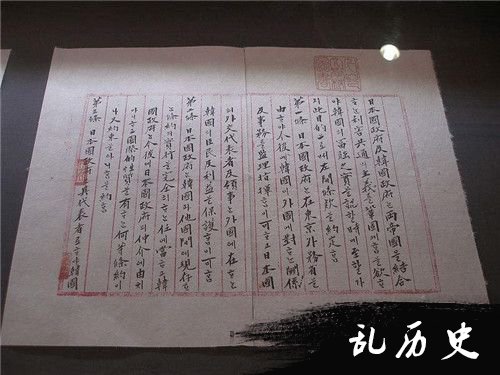 日本國政府及韓國政府ᄂᆞᆫ兩帝國을結合
ᄒᆞᄂᆞᆫ利害共通의主義를鞏固케ᄒᆞᆷ을欲ᄒᆞ
야韓國의富强之實을認ᄒᆞᆯ時에至ᄒᆞᆯ가
지此目的으로써左開條款을約定ᄒᆞᆷ
第一條 日本國政府ᄂᆞᆫ在東京外務省을
由ᄒᆞ야今後에韓國이外國에對ᄒᆞᄂᆞᆫ關係
及事務를監理指揮ᄒᆞᆷ이可ᄒᆞ고日本國
의外交代表者及領事ᄂᆞᆫ外國에在ᄒᆞᄂᆞᆫ
韓國의臣民及利益을保護ᄒᆞᆷ이可ᄒᆞᆷ
第二條 日本國政府ᄂᆞᆫ韓國과他國間에現存ᄒᆞ
ᄂᆞᆫ條約의實行을完全히ᄒᆞᄂᆞᆫ任에當ᄒᆞ고韓
國政府ᄂᆞᆫ今後에日本國政府의仲介에由치
아니ᄒᆞ고國際的性質을有ᄒᆞᄂᆞᆫ何等條約이
나又約束을아니ᄒᆞᆷ을約ᄒᆞᆷ
第三條 日本國政府ᄂᆞᆫ其代表者로ᄒᆞ야韓國
乱历史